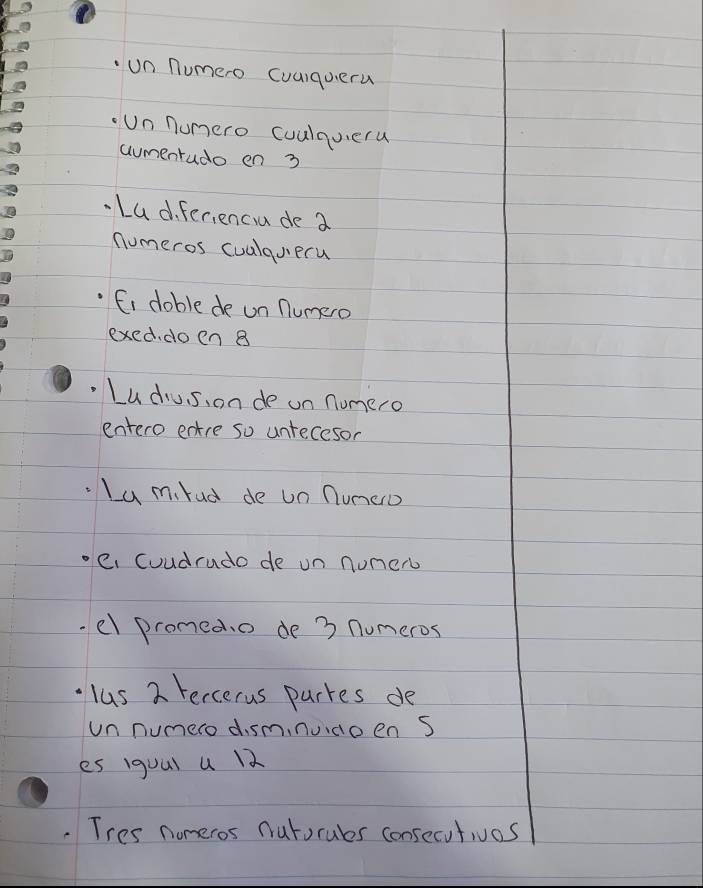 · Un numero cualquiera
· Un numero cualquiera
aumentado en 3
· La diferiencia de 2
numeros cualquiera
· El doble de un numero
exedido en 8
· La division de un numero
entero entre su antecesor
· La mitad de un numero
· el cuadrado de un numero
· el promedio de 3 numeros
· las 2 terceras partes de
un numero disminuido en 5
es igual a 12
· Tres numeros naturales consecutivos